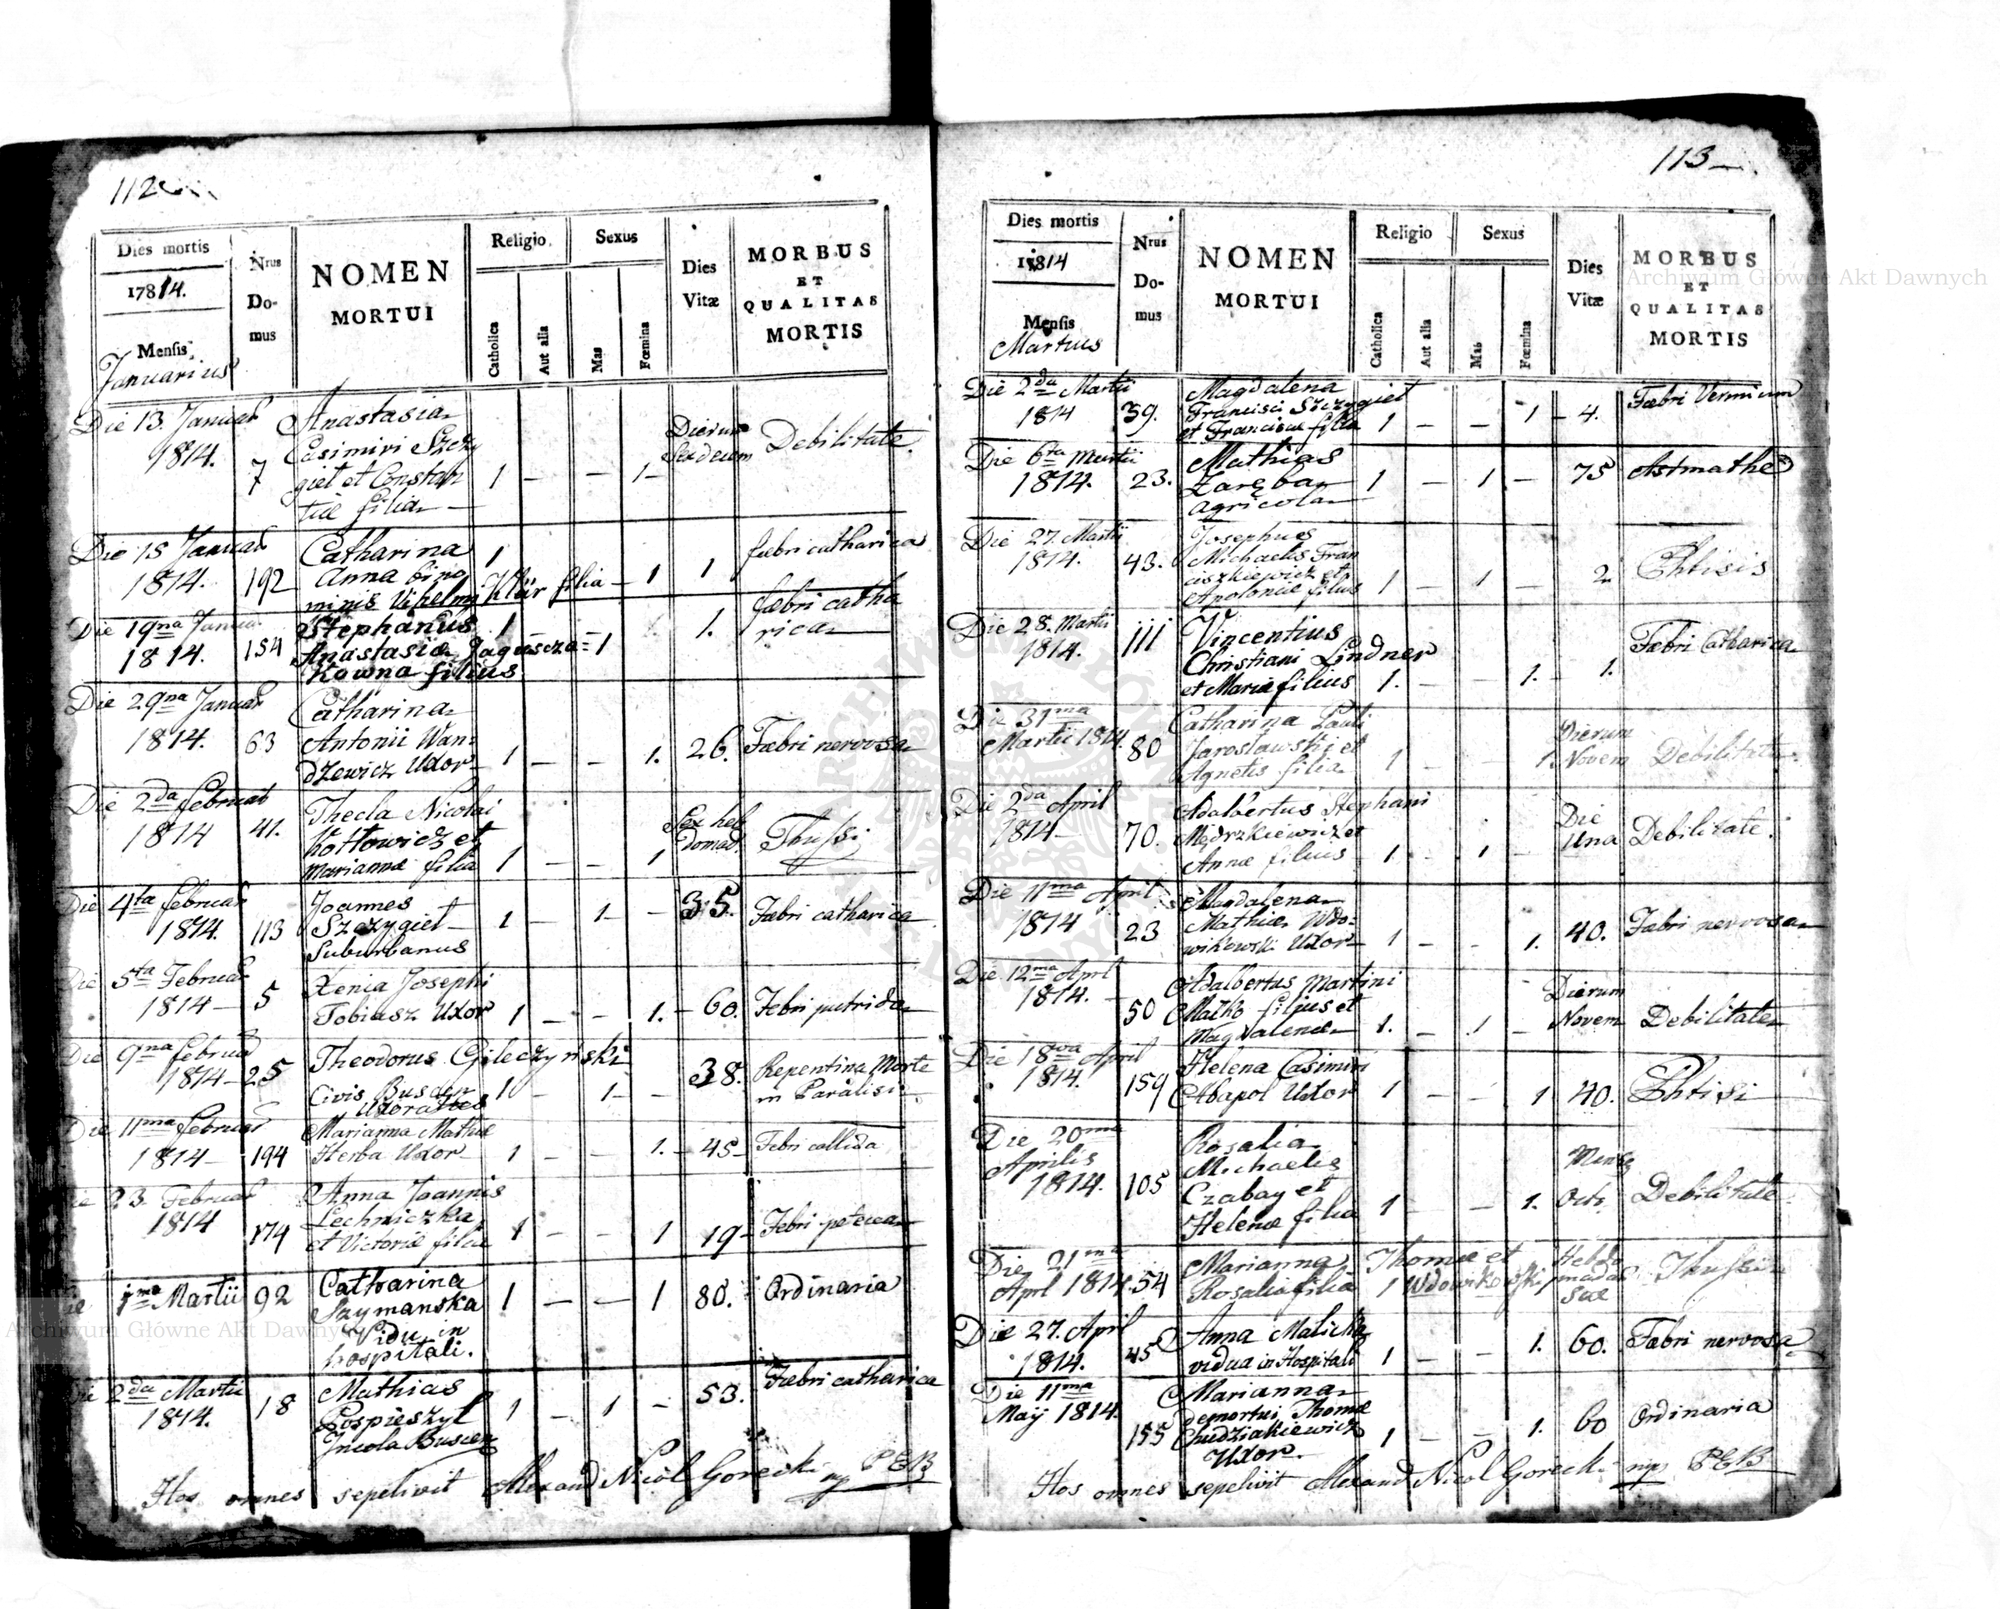 112
Dies mortis
17814.
Mensis
Januarius
Nrus
Do-
mus
NOMEN
MORTUI
Religio
Catholica
Aut alia
Sexus
Mas
Fœmina
Dies
Vitæ
MORBUS
ET
QUALITAS
MORTIS
Die 13. Januar
1814.
7
Anastasia
Casimiri Szczy
giel et Constan
tiæ filia
1 — — 1
Dierum
Debilitate.
Die 15 Januar
1814.
192
Catharina
Anna bino
minis Vihelmi Klür filia
1 — 1
1
febri catharica
Die 19na Januar
1814.
154
Stephanus
Anastasiæ Jaguscza=
kowna filius
1 — 1
1.
fæbri catha
rica
Die 29na Januar
1814.
63
Catharina
Antonii Wan=
dzewicz Uxor
1 — — 1.
26.
Fæbri nervosa
Die 2da Februar
1814
41.
Thecla Nicolai
Kottowicz et
Mariannæ filia
1 — — 1
Sex heb
domad.
Thussi
Die 4ta Februar
1814.
113
Joannes
Szczygiel
Suburbanus
1 — 1 —
35.
Fæbri catharica
Die 5ta Februar
1814
5
Xenia Josephi
Tobiasz Uxor
1 — — 1.
60.
Febri putrida
Die 9na Februar
1814
25
Theodorus Gileczynski
Civis Buscen
Uxoratus
1 — 1 —
38.
Repentina Morte
in Paralisi
Die 11ma Februar
1814
194
Marianna Mathiæ
Herba Uxor
1 — — 1.
45
Febri callida
Die 23 Februar
1814
174
Anna Joannis
Lechniczka
et Victoriæ filia
1 — — 1
19
Febri petecea
Die 1ma Martii
92
Catharina
Szymanska
Vidu in
hospitali.
1 — — 1
80.
Ordinaria
Die 2da Martii
1814.
18
Mathias
Pospieszyl
Incola Buscen
1 — 1 —
53.
Fæbri catharica
Hos omnes sepelivit Alexand Nicol Gorecki mp PEB
113
Dies mortis
17814
Mensis
Martius
Nrus
Do-
mus
NOMEN
MORTUI
Religio
Catholica
Aut alia
Sexus
Mas
Fœmina
Dies
Vitæ
MORBUS
ET
QUALITAS
MORTIS
Die 2da Martii
1814
39.
Magdalena
Francisci Szczygiel
et Franciscæ filia
1 — — 1
4.
Fæbri Vermium
Die 6ta Martii
1814.
23.
Mathias
Zaręba
agricola
1 — 1 —
75
Astmathe
Die 27. Martii
1814.
43.
Josephus
Michaelis Fran
ciszkiewicz et
Apoloniæ filius
1 — 1 —
2
Phtisis
Die 28. Martii
1814.
111
Vincentius
Christiani Lindner
et Mariæ filius
1. — — 1.
1.
Fæbri Catharica
Die 31ma
Martii 1814.
80
Catharina Pauli
Jaroslawski et
Agnetis filia
1 — — 1
Dierum
Novem
Debilitate.
Die 2da April
1814
70.
Adalbertus Stephani
Mędrzkiewicz et
Annæ filius
1 — 1 —
Die
Una
Debilitate.
Die 11ma April
1814
23
Magdalena
Mathiæ Wdo=
wikowski Uxor
1 — — 1.
40.
Fæbri nervosa
Die 12ma April
1814.
50
Adalbertus Martini
Malko filius et
Magdalenæ
1. — 1 —
Dierum
Novem
Debilitate
Die 18va April
1814.
159
Helena Casimiri
Abapol Uxor
1 — — 1
40.
Phtisi
Die 20ma
Aprilis
1814.
105
Rosalia
Michaelis
Czabay et
Helenæ filia
1 — — 1.
Mens
Octo
Debilitate
Die 21ma
Apri 1814.
54
Marianna Thomæ et
Rosaliæ filia
1 Wdowikowski
Hebdo
madas
Sex
Thussi
Die 27. April
1814.
45
Anna Malicka
vidua in Hospitali
1 — — 1.
60.
Fæbri nervosa
Die 11ma
Maij 1814.
155
Marianna
demortui Thomæ
Chudziakiewicz
Uxor
1 — — 1.
60
Ordinaria
Hos omnes sepelivit Alexand Nicol Gorecki mp PEB
Archiwum Główne Akt Dawnych
Archiwum Główne Akt Dawnych